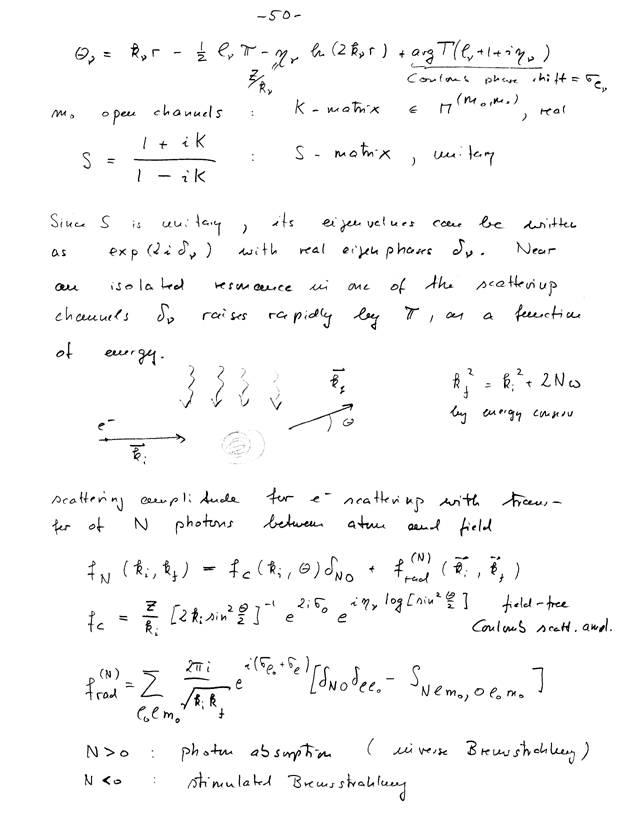 -50-
Θ_ν = k_ν r - 1/2 ℓ_ν π - η_ν ln(2k_ν r) + arg Γ(ℓ_ν+1+iη_ν)
Z/k_ν Coulomb phase shift = σ_ℓν
m₀ open channels : K-matrix ∈ M^(m₀,m₀), real
S = (1 + iK)/(1 - iK) : S-matrix, unitary
Since S is unitary, its eigenvalues can be written
as exp(2iδ_ν) with real eigenphases δ_ν. Near
an isolated resonance in one of the scattering
channels δ_ν raises rapidly by π, as a function
of energy.
k_f² = k_i² + 2Nω
by energy conserv
e⁻ k⃗_i k⃗_f Θ
scattering amplitude for e⁻ scattering with trans-
fer of N photons between atom and field
f_N (k_i, k_f) = f_c(k_i, Θ)δ_N0 + f_rad^(N) (k⃗_i, k⃗_f)
f_c = Z/k_i [2k_i sin² Θ/2]^-1 e^(2iσ₀) e^(iη_ν log[sin² Θ/2]) field-free
Coulomb scatt. ampl.
f_rad^(N) = Σ_(ℓ₀ℓm₀) 2πi/√(k_i k_f) e^(i(σ_ℓ₀+σ_ℓ)) [δ_N0 δ_ℓℓ₀ - S_(Nℓm₀, 0ℓ₀m₀)]
N>0 : photon absorption (inverse Bremsstrahlung)
N<0 : stimulated Bremsstrahlung